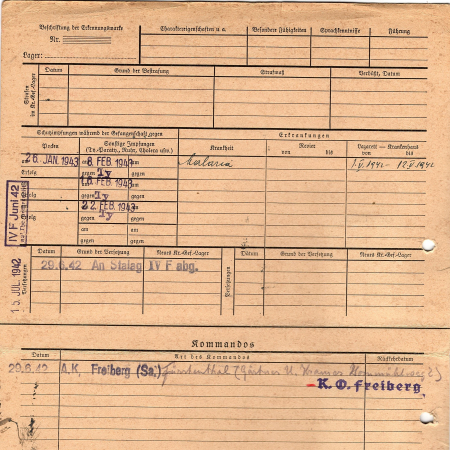 Beschriftung der Erkennungsmarke
Nr.
Lager:
Charaktereigenschaften u. a.
Besondere Fähigkeiten
Sprachkenntnisse
Führung
Strafen im Kr.-Gef.-Lager
Datum
Grund der Bestrafung
Strafmaß
Verbüßt, Datum
Schutzimpfungen während der Gefangenschaft gegen
Erkrankungen
Pocken
Sonstige Impfungen
(Ty.-Paraty., Ruhr, Cholera usw.)
Krankheit
Revier
von bis
Lazarett — Krankenhaus
von bis
am 26. JAN. 1943
am 8. FEB. 1943
Malaria
1.V.1942 - 12.V.1942
Erfolg
gegen Ty
FEB. 1943
gegen Ty
22. FEB. 1943
gegen Ty
am
gegen
am
gegen
IV F Juni 42
15. JUL. 1942
Versetzungen
Datum
Grund der Versetzung
Neues Kr.-Gef.-Lager
Versetzungen
Datum
Grund der Versetzung
Neues Kr.-Gef.-Lager
29.6.42 An Stalag IV F abg.
Kommandos
Datum
Art des Kommandos
Rückkehrdatum
29.6.42 A.K. Freiberg (Sa.)
K. O. Freiberg